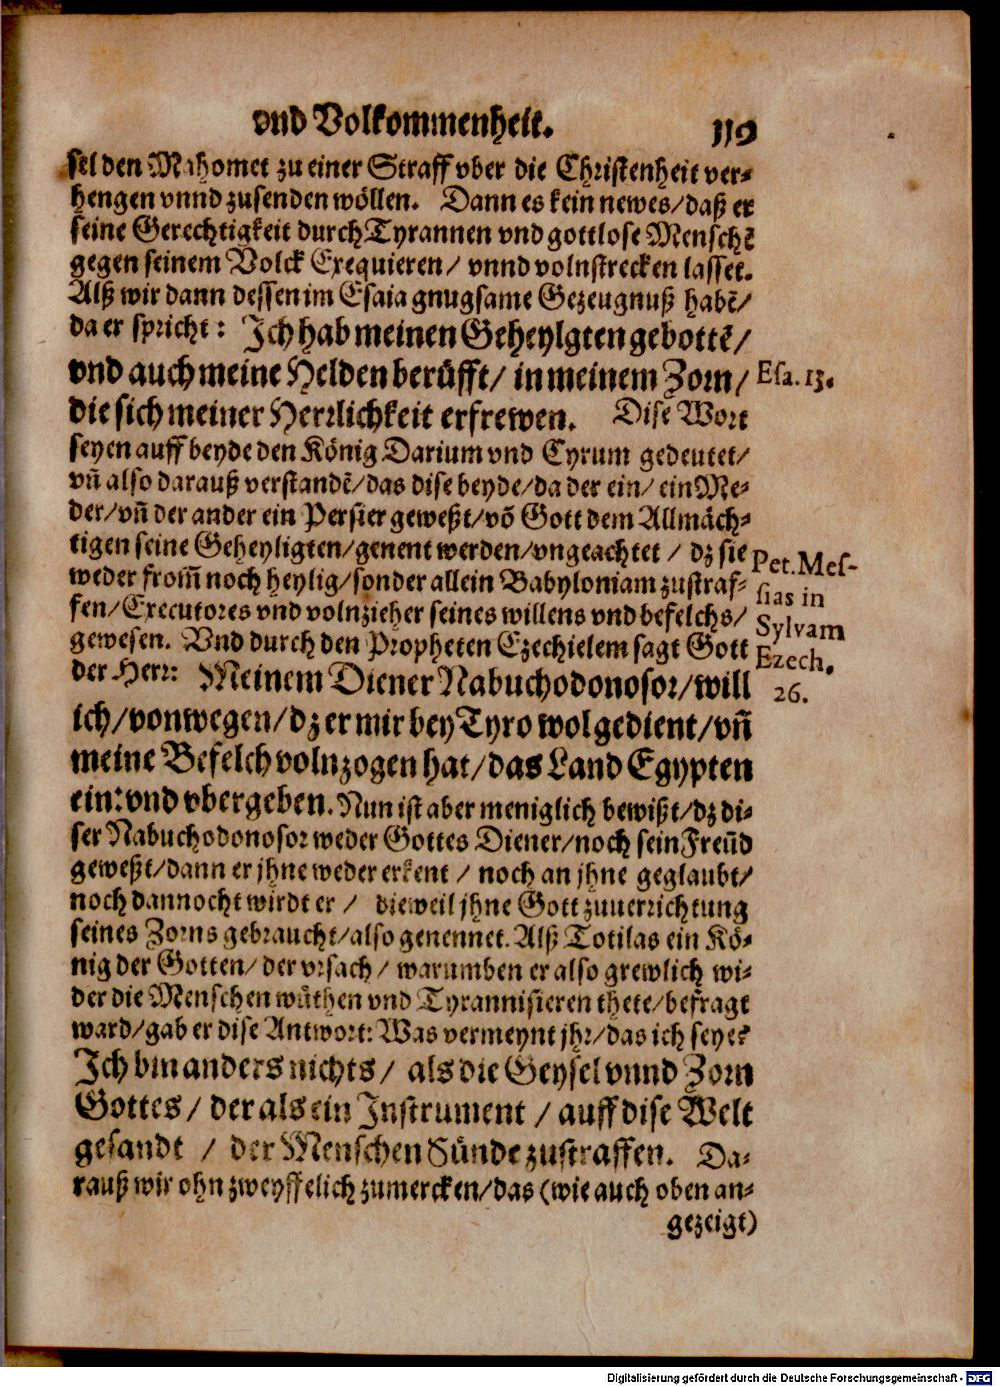 vnd Volkommenheit. 119
sel den Mahomet zu einer Straff vber die Christenheit ver⸗
hengen vnnd zusenden wöllen. Dann es kein newes/daß er
seine Gerechtigkeit durch Tyrannen vnd gottlose Menschẽ
gegen seinem Volck Exequieren/ vnnd volnstrecken lasset.
Alß wir dann dessen im Esaia gnugsame Gezeugnuß habẽ/
da er spricht: Ich hab meinen Geheylgten gebottẽ/
vnd auch meine Helden berůfft/ in meinem Zorn/
Esa. 13.
die sich meiner Herrlichkeit erfrewen. Dise Wort
seyen auff beyde den König Darium vnd Cyrum gedeutet/
vñ also darauß verstandẽ/das dise beyde/da der ein/ ein Me⸗
der/vñ der ander ein Persier geweßt/võ Gott dem Allmäch⸗
tigen seine Geheyligten/genent werden/vngeachtet / dz sie
Pet. Mes-
weder from̃ noch heylig/sonder allein Babyloniam zustraf⸗
sias in
fen/Executores vnd volnzieher seines willens vnd befelchs/
Sylvam
gewesen. Vnd durch den Propheten Ezechielem sagt Gott
Ezech.
der Herr: Meinem Diener Nabuchodonosor/will
26.
ich/vonwegen/dz er mir bey Tyro wol gedient/vñ
meine Befelch volnzogen hat/das Land Egypten
ein: vnd vbergeben. Nun ist aber meniglich bewißt/dz di⸗
ser Nabuchodonosor weder Gottes Diener/noch sein Freũd
geweßt/dann er jhne weder erkent / noch an jhne geglaubt/
noch dannocht wirdt er / dieweil jhne Gott zuuerrichtung
seines Zorns gebraucht/also genennet. Alß Totilas ein Kö⸗
nig der Gotten/ der vrsach/ warumben er also grewlich wi⸗
der die Menschen wůthen vnd Tyrannisieren thete/befragt
ward/gab er dise Antwort: Was vermeynt jhr/das ich seye?
Ich bin anders nichts/ als die Geysel vnnd Zorn
Gottes/ der als ein Instrument / auff dise Welt
gesandt / der Menschen Sünde zustraffen. Da⸗
rauß wir ohn zweyffelich zumercken/das (wie auch oben an⸗
gezeigt)
Digitalisierung gefördert durch die Deutsche Forschungsgemeinschaft - DFG